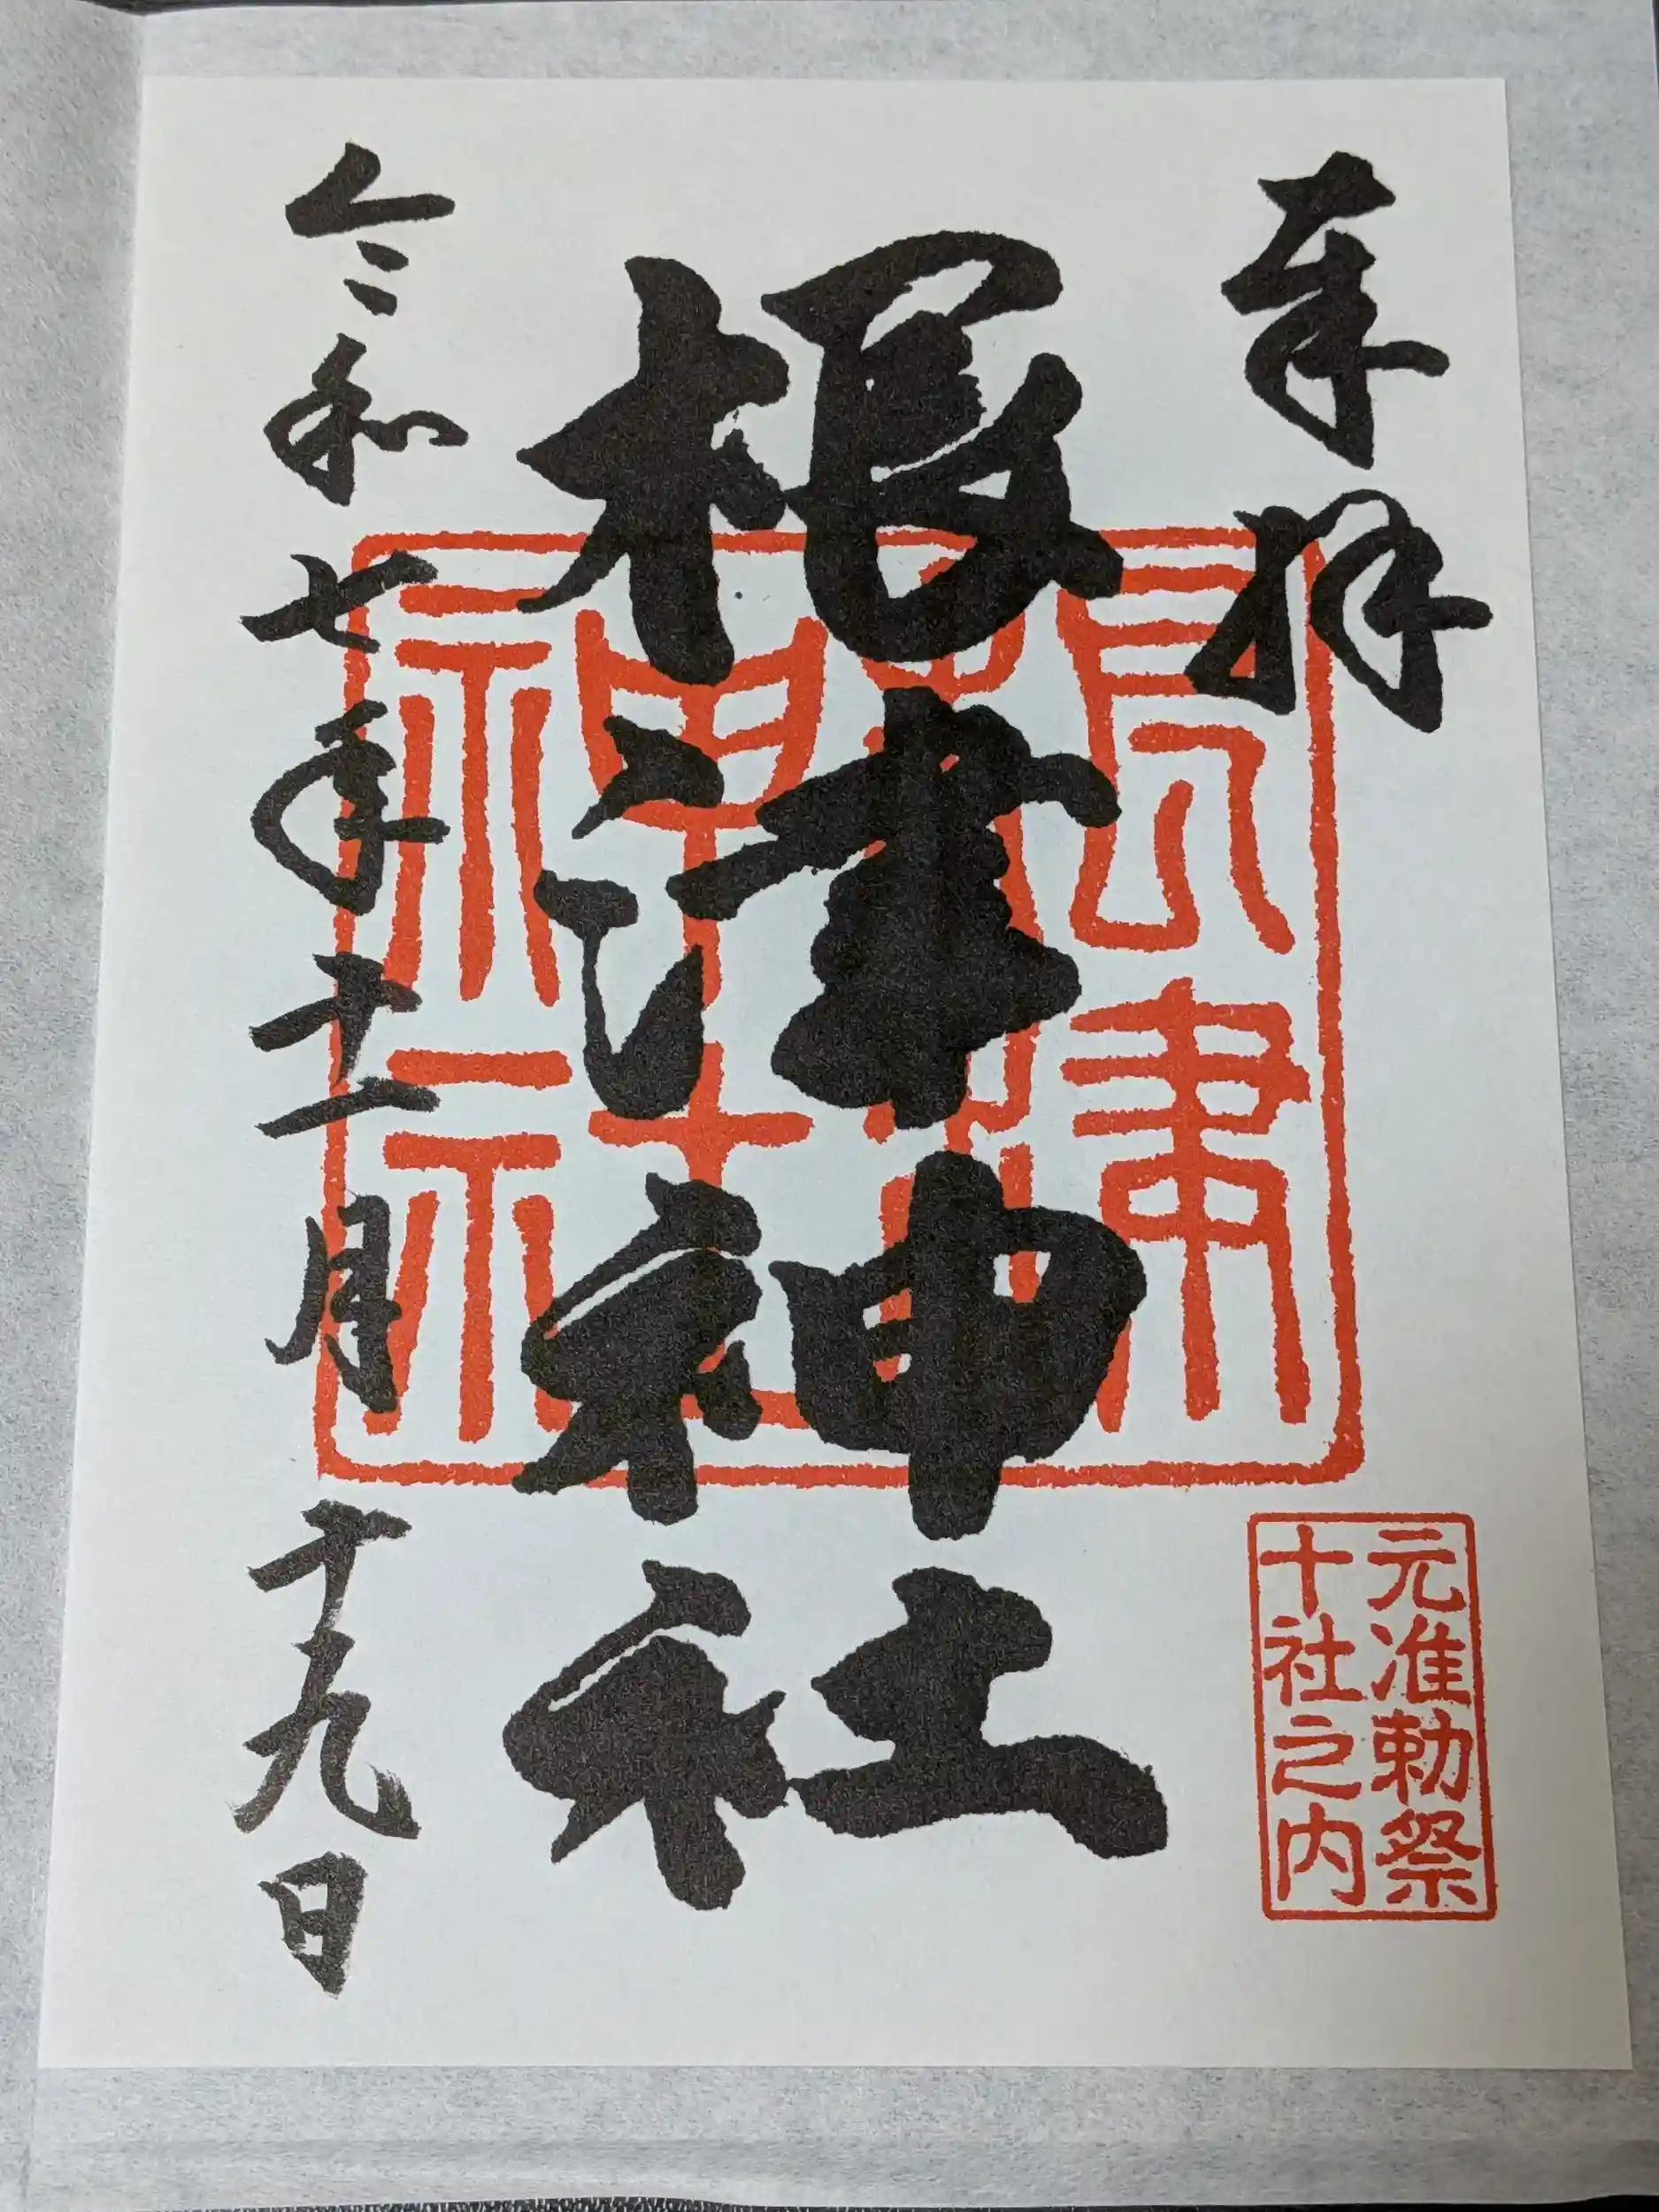 奉拝
元准勅祭
十社之内
根津神社
根津神社
令和七年十一月十九日